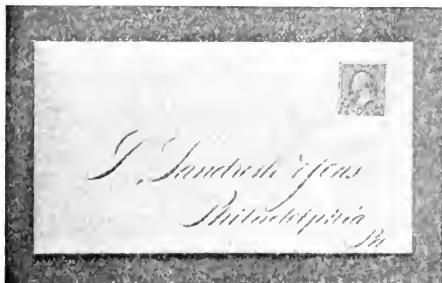 D. Landreth & Sons
Philadelphia
Pa